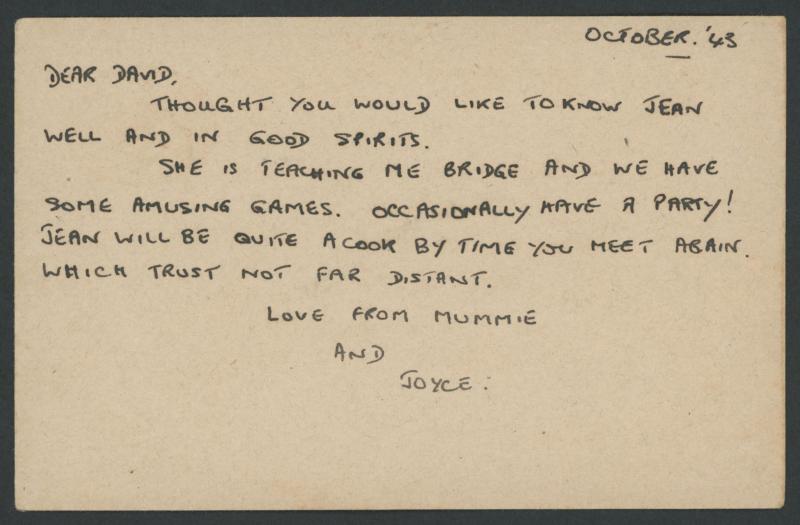 OCTOBER. '43
DEAR DAVID,
THOUGHT YOU WOULD LIKE TO KNOW JEAN
WELL AND IN GOOD SPIRITS.
SHE IS TEACHING ME BRIDGE AND WE HAVE
SOME AMUSING GAMES. OCCASIONALLY HAVE A PARTY!
JEAN WILL BE QUITE A COOK BY TIME YOU MEET AGAIN.
WHICH TRUST NOT FAR DISTANT.
LOVE FROM MUMMIE
AND
JOYCE.